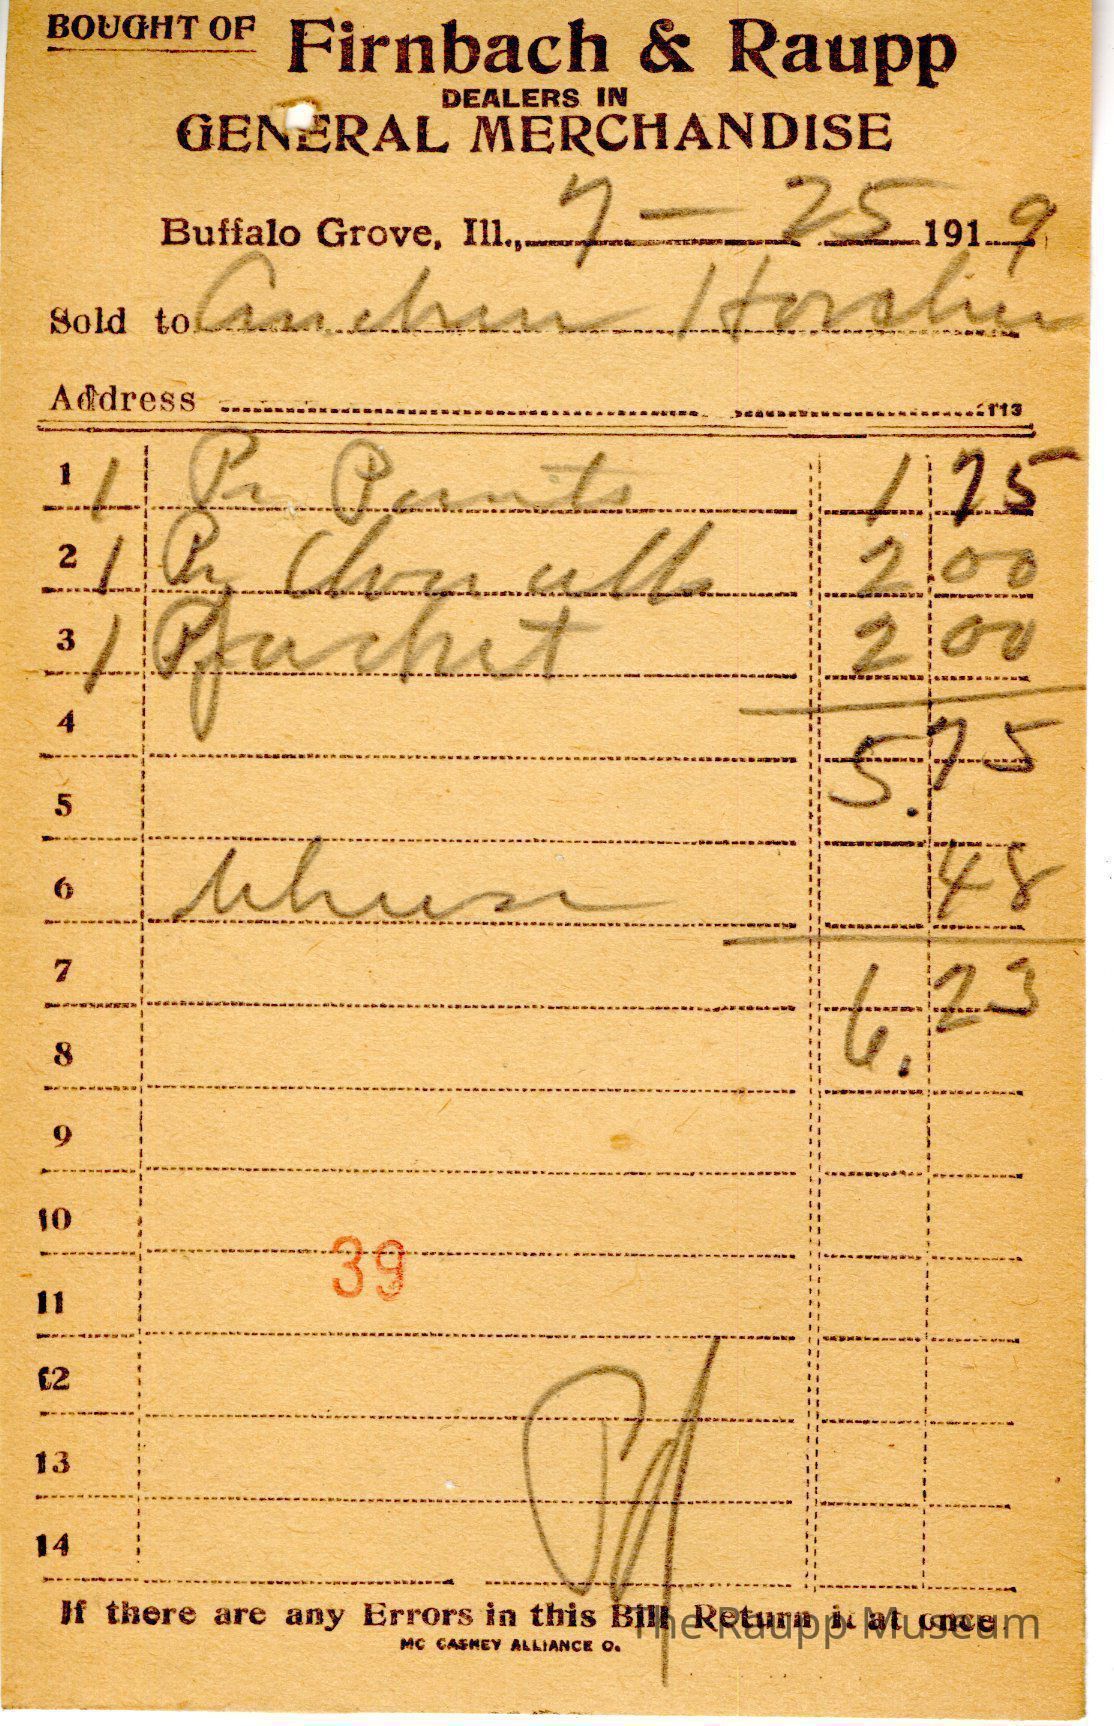 BOUGHT OF Firnbach & Raupp
DEALERS IN
GENERAL MERCHANDISE
Buffalo Grove, Ill., 7 - 25 1919
Sold to
Address
T13
1 1 Pr Pants 1 75
2 1 Pr 2 00
3 1 Jacket 2 00
4 5.75
5
6 48
7 6.23
8
9
10
39
11
12
13
14 Pd
If there are any Errors in this Bill Return it at once
MC CASKEY ALLIANCE O.
The Raupp Museum